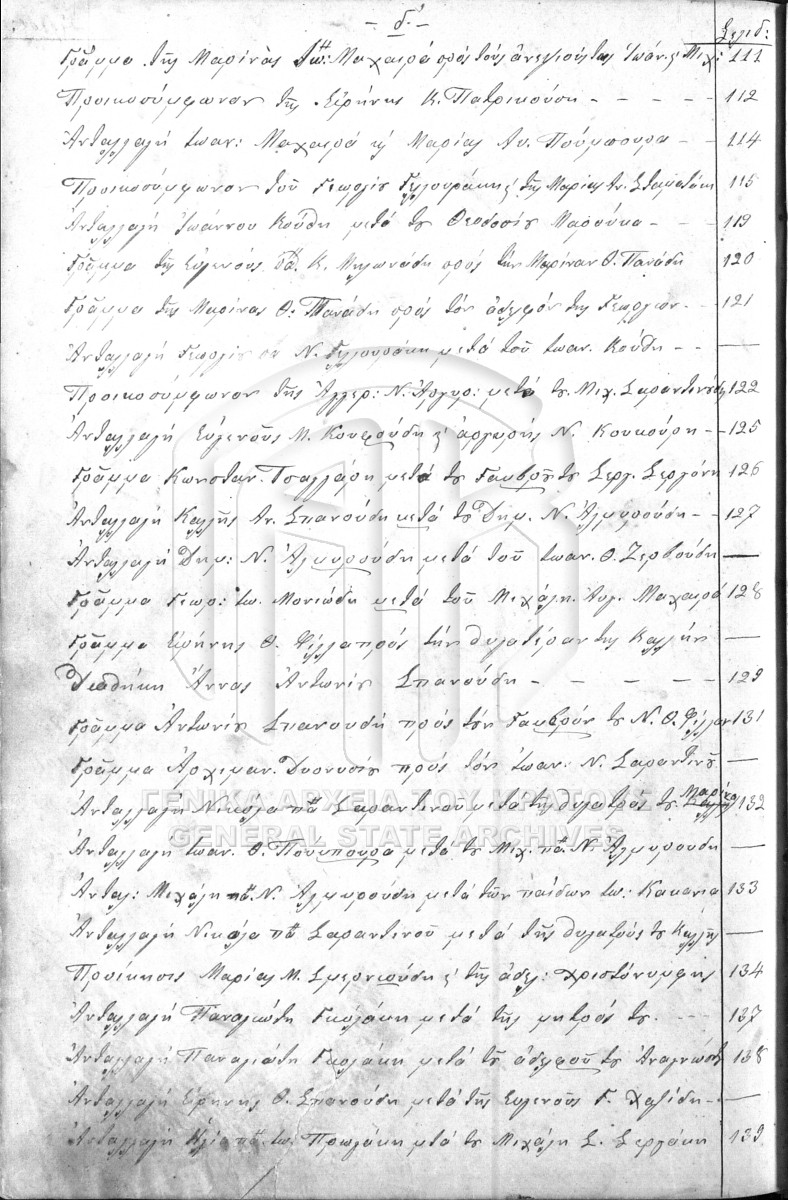 - δ.-
Σελιδ:
Γράμμα της Μαρίνας Ἰω: Μαχαιρά πρός τούς ἀνεψιούς της Ἰωάν. ς Μιχ: 111
Προικοσύμφωνον της Εἰρήνης Κ. Πατρικούση - - - - - 112
Ἀνταλλαγή Ἰωαν: Μαχαιρά ϗ Μαρίας Αν. Πούμπουρα - - 114
Προικοσύμφωνον τοῦ Γεωργίου ς της Μαρίας Αν. Σταματάκη 115
Ἀνταλλαγή Ἰωάννου Κούδη μετά του Θεοδοσίου Μαρούκα - - - 119
Γράμμα της Εὐγενούς Κ. Μυλωνάδη πρός τήν Μαρίναν Θ. Πανάδη 120
Γράμμα της Μαρίνας Θ. Πανάδη πρός τόν ἀδελφόν της Γεώργιον. - - 121
Ἀνταλλαγή Γεωργίου Ν. μετά τοῦ Ἰωαν. Κούδη - - —
Προικοσύμφωνον της Ν. Ἀργυρ: μετά του Μιχ. Σαραντινούδη 122
Ἀνταλλαγή Εὐγενοῦς Μ. Κουφούδη ς Ἀργυρής Ν. Κουκούρη - - 125
Γράμμα Κωνσταν. Τσαγγάρη μετά του Γαμβροῦ του Σεργ. 126
Ἀνταλλαγή Καλῆς Αν. Σπανούδη μετά του Δημ. Ν. Ἀλμυρούδη - - 127
Ἀνταλλαγή Δημ: Ν. Ἀλμυρούδη μετά τοῦ Ἰωαν. Θ. Ζερβούδη —
Γράμμα Γεωρ: Ἰω. Μονιώδη μετά τοῦ Μιχάλη Μαχαιρά 128
Γράμμα Εἰρήνης Θ. Φίλλα πρός τήν θυγατέραν της Καλήν —
Διαθήκη Ἄννας Ἀντωνίου Σπανούδη - - - - - 129
Γράμμα Ἀντωνίου Σπανούδη πρός τόν Γαμβρόν του Ν. Θ. Φίλλαν 131
Γράμμα Ἀρχιμαν. Διονυσίου πρός τόν Ἰωαν: Ν. Σαραντινοῦ —
Ἀνταλλαγή Νικόλα πα Σαραντινοῦ μετά της θυγατρός του Μαρίας 132
Ἀνταλλαγή Ἰωαν. Θ. Πούμπουρα μετά του Μιχ. πα. Ν. Ἀλμυρούδη —
Ἀνταλ: Μιχάλη πα. Ν. Ἀλμυρούδη μετά των παίδων Ἰω: Κακανια 133
Ἀνταλλαγή Νικόλα πα Σαραντινοῦ μετά της θυγατρός του Καλῆς —
Προίκησις Μαρίας Μ. ς της ἀδελ: 134
Ἀνταλλαγή Παναγιώτη Γκολάκη μετά της μητρός του - - - 137
Ἀνταλλαγή Παναγιώτη Γκολάκη μετά τοῦ ἀδελφοῦ του Ἀναγνώστη 138
Ἀνταλλαγή Εἰρήνης Θ. Σπανούδη μετά της Εὐγενοῦς Γ. - - —
Ἀνταλλαγή Ἠλία πα. Ἰω: Πρωτάκη μετά του Μιχάλη Σ. Σεργάκη 139
ΓΕΝΙΚΑ ΑΡΧΕΙΑ ΤΟΥ ΚΡΑΤΟΥΣ
GENERAL STATE ARCHIVES